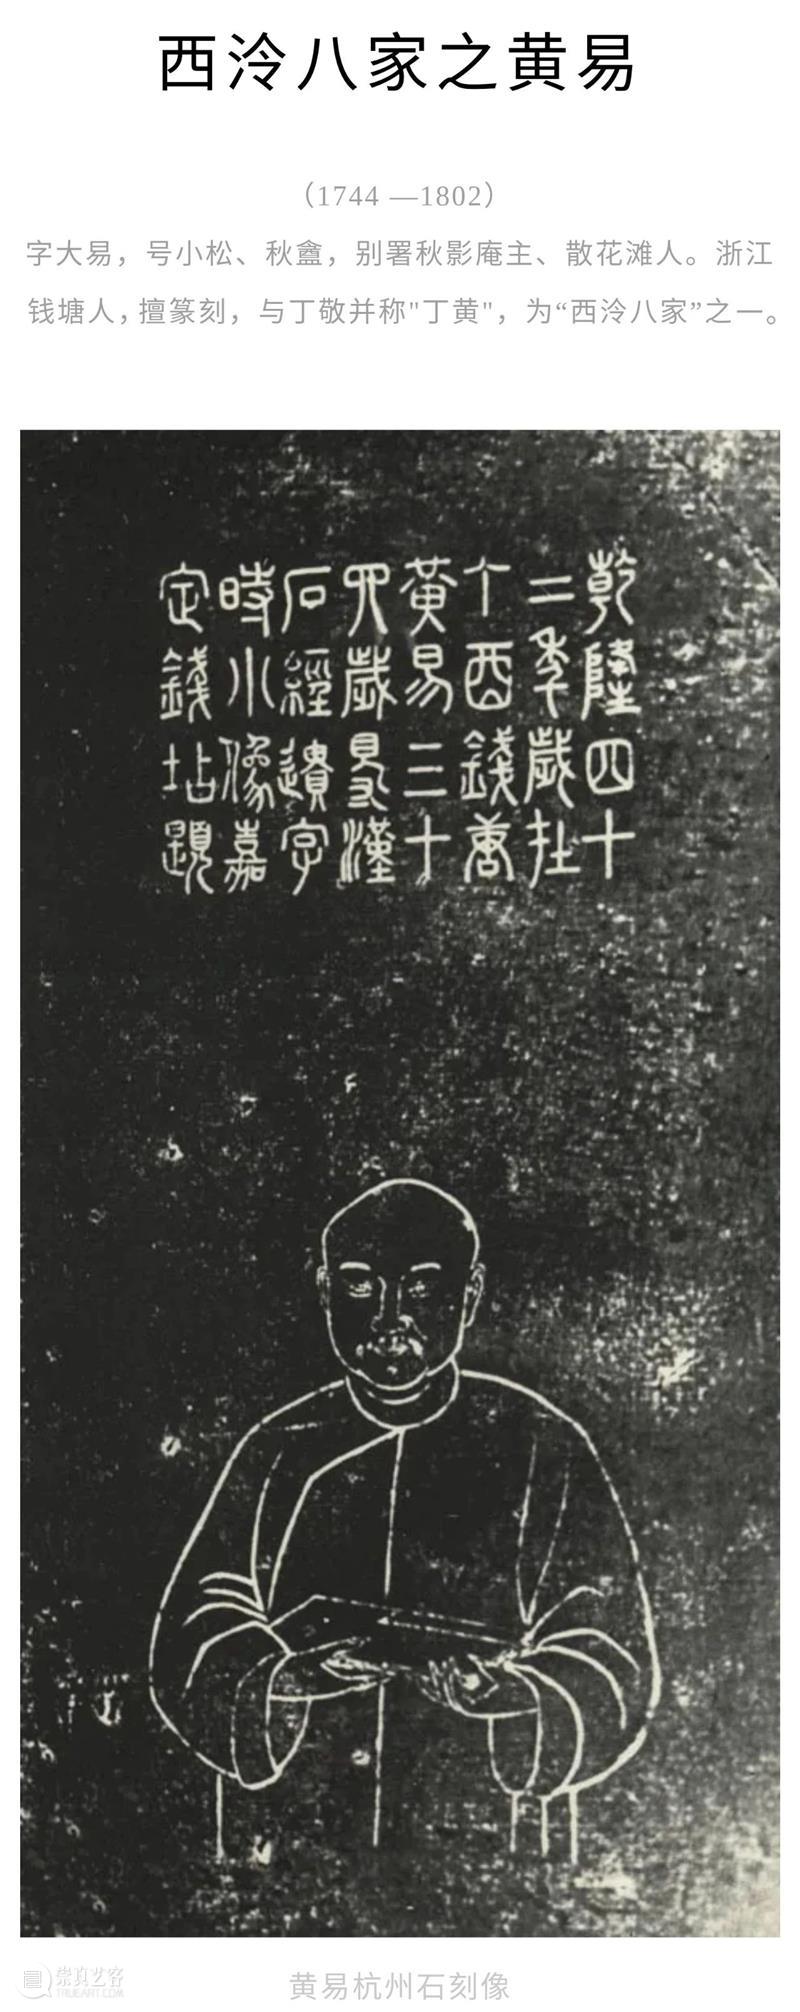 西泠八家之黄易
（1744 —1802）
字大易，号小松、秋盦，别署秋影庵主、散花滩人。浙江
钱塘人，擅篆刻，与丁敬并称"丁黄"，为“西泠八家”之一。
乾隆四十
二年歲在
丁酉錢唐
黃易三十
四歲得漢
石經遺字
時小像嘉
定錢坫題
黄易杭州石刻像
崇真艺客
TRUEART.COM